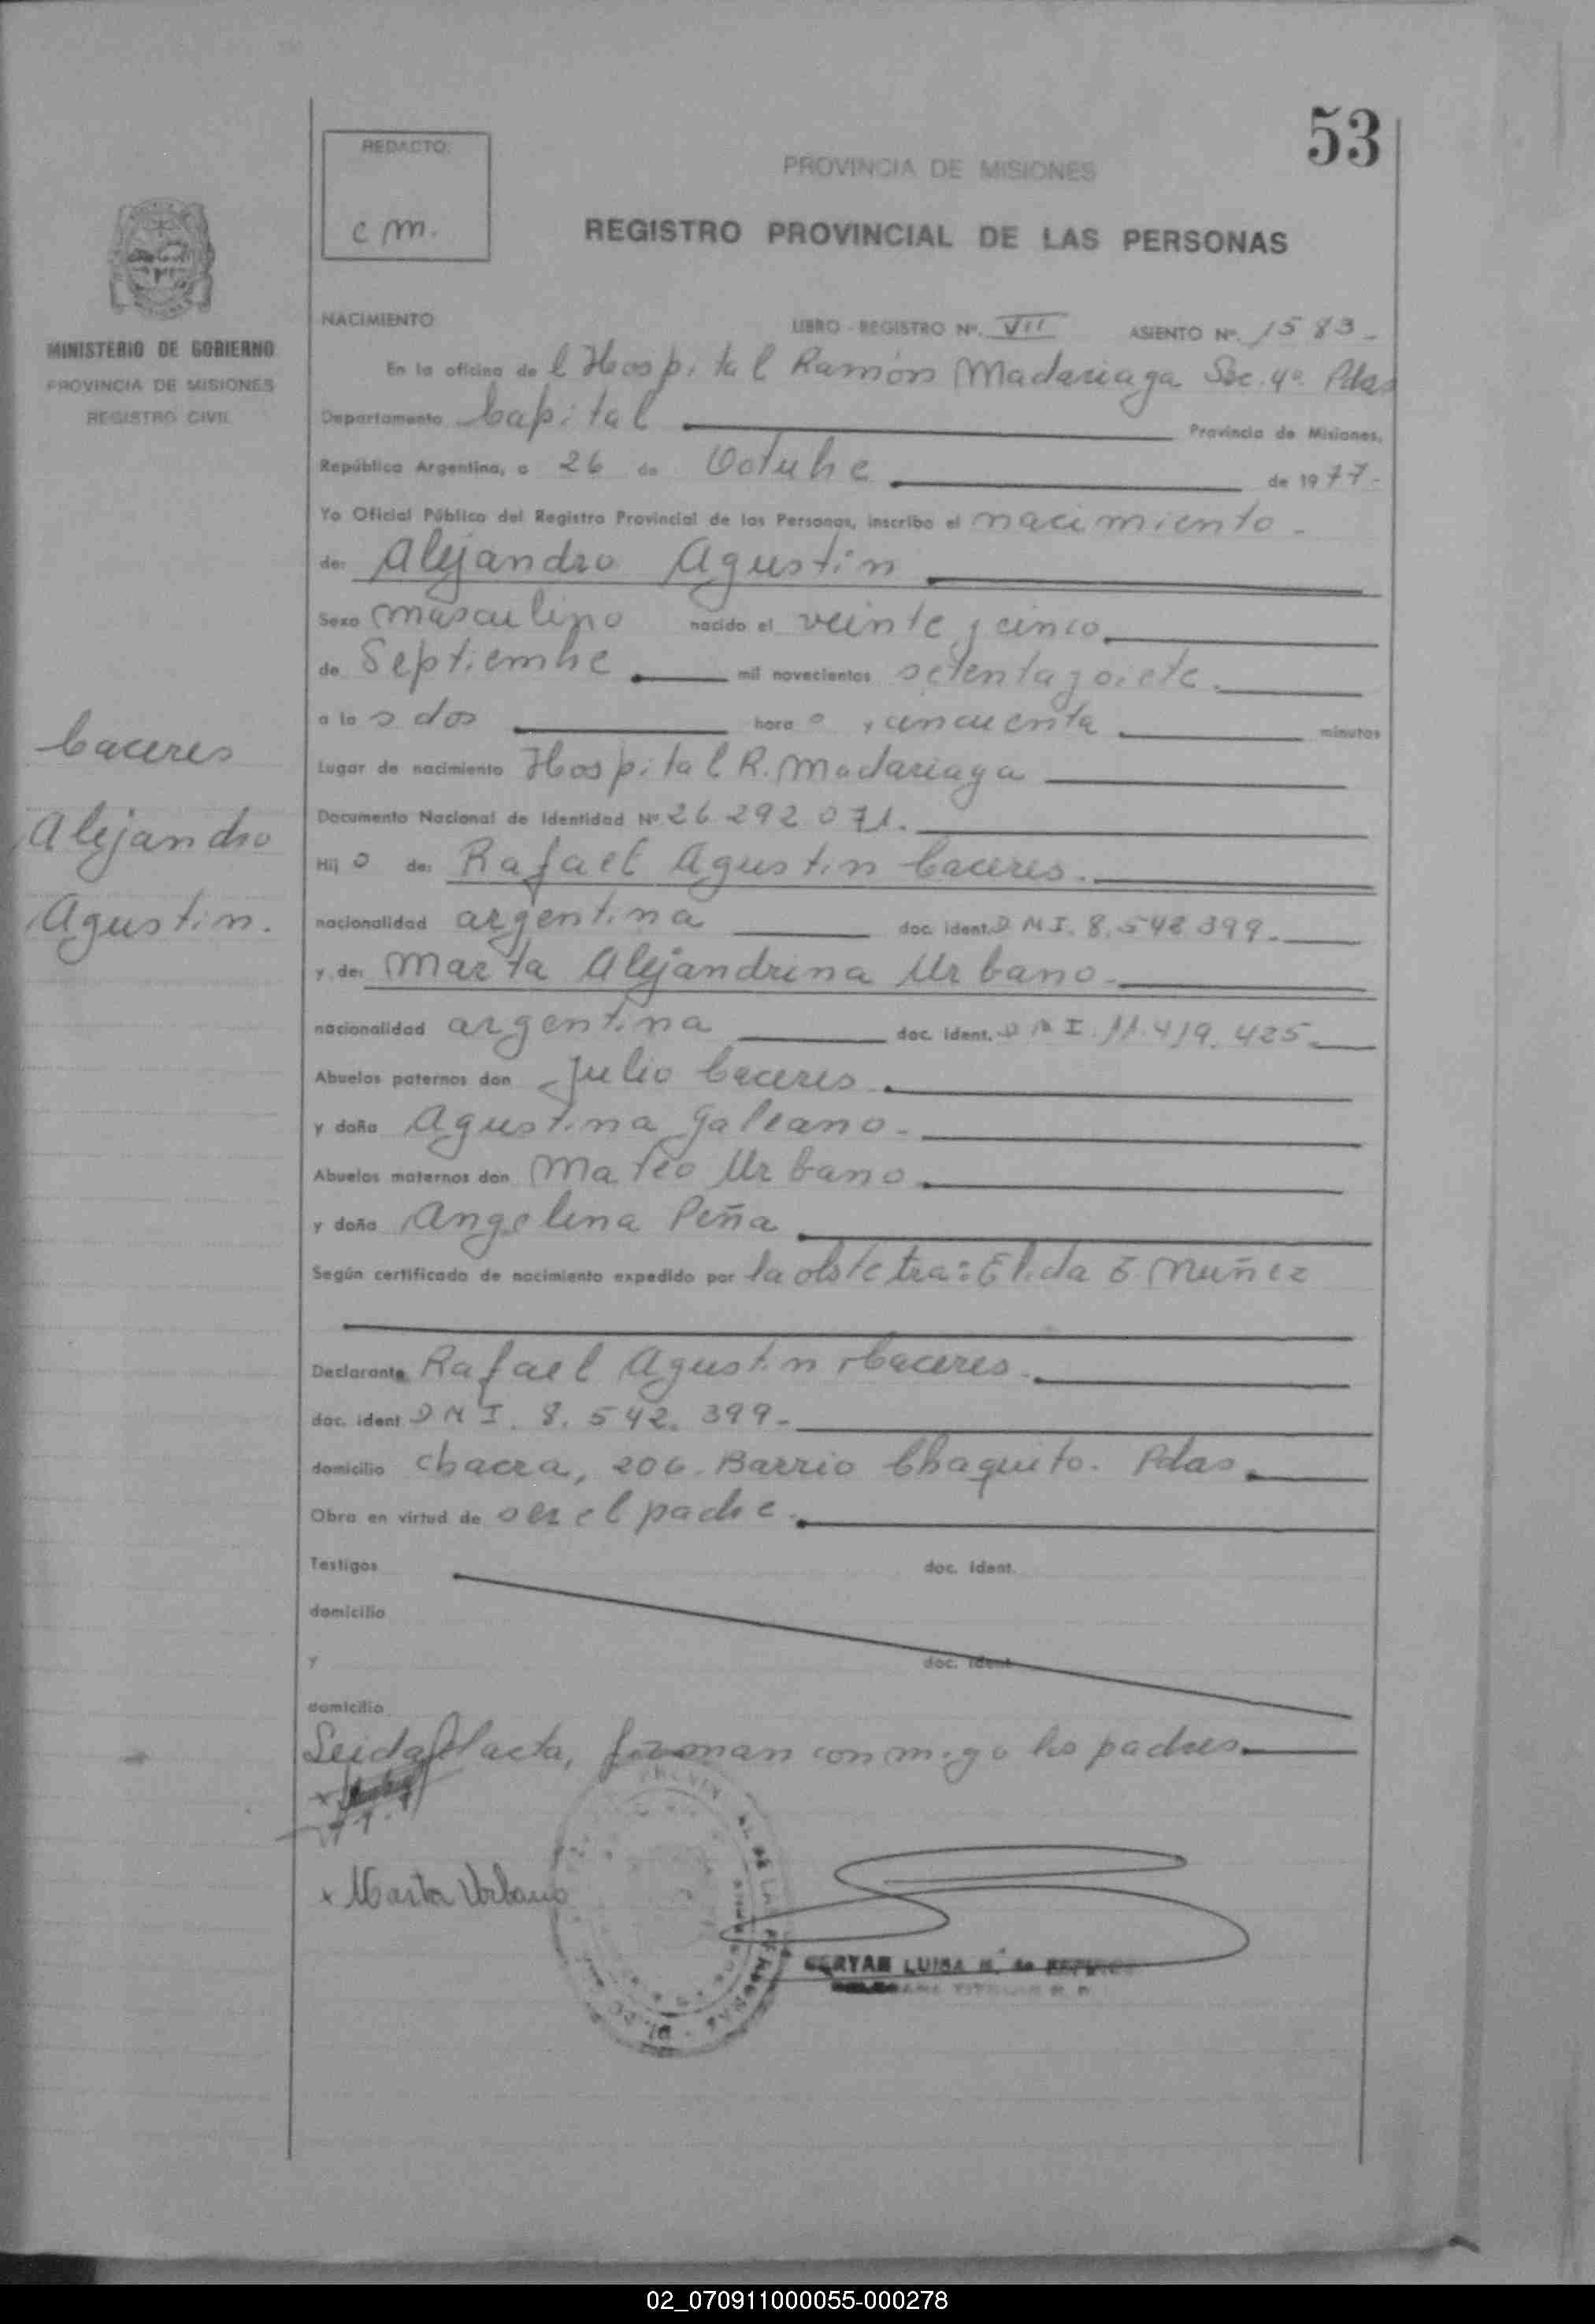 53
REDACTO:
c m.
PROVINCIA DE MISIONES
REGISTRO PROVINCIAL DE LAS PERSONAS
MINISTERIO DE GOBIERNO
PROVINCIA DE MISIONES
REGISTRO CIVIL
NACIMIENTO LIBRO - REGISTRO Nº. VII ASIENTO Nº. 1583-
En la oficina de l Hospital Ramón Madariaga Sec. 4ª. Pdas
Departamento Capital Provincia de Misiones,
República Argentina, a 26 de Octubre de 1977-
Yo Oficial Público del Registro Provincial de las Personas, inscribo el nacimiento-
de: Alejandro Agustin
Sexo masculino nacido el veinte y cinco
de Septiembre mil novecientos setenta y siete
a las dos horas y cincuenta minutos
Lugar de nacimiento Hospital R. Madariaga
Documento Nacional de Identidad Nº 26.292.071.
Hijo de: Rafael Agustin Caceres.
nacionalidad argentina doc. ident. D N I. 8.542.399-
y de: Marta Alejandrina Urbano.
nacionalidad argentina doc. ident. D N I. 11.419.425-
Abuelos paternos don Julio Caceres
y doña Agustina Galeano-
Abuelos maternos don Mateo Urbano
y doña Angelina Peña
Según certificado de nacimiento expedido por la obstetra: Elida E. Nuñez
Declarante Rafael Agustin Caceres.
doc. ident D N I. 8.542.399-
domicilio chacra, 206. Barrio Chaquito. Pdas.
Obra en virtud de ser el padre.
Testigos doc. ident.
domicilio
y doc. ident
domicilio
Leida el acta, firman conmigo los padres.
x
x Marta Urbano
LUISA
Caceres
Alejandro
Agustin.
02_070911000055-000278